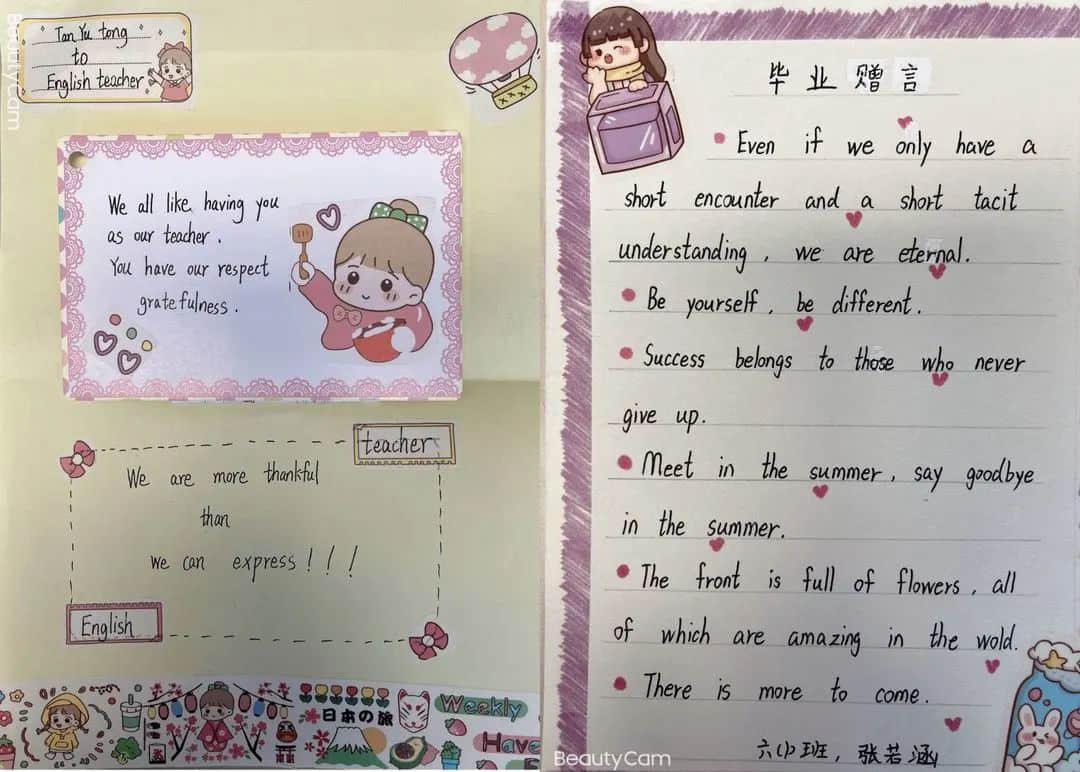 BeautyCam
Tan Yu tong
to
English teacher
We all like having you
as our teacher.
You have our respect
gratefulness.
teacher
We are more thankful
than
we can express!!!
English
日本の旅
Weekly
Have
毕业赠言
Even if we only have a
short encounter and a short tacit
understanding, we are eternal.
Be yourself, be different.
Success belongs to those who never
give up.
Meet in the summer, say goodbye
in the summer.
The front is full of flowers, all
of which are amazing in the wold.
There is more to come.
六(1)班, 张若涵
BeautyCam